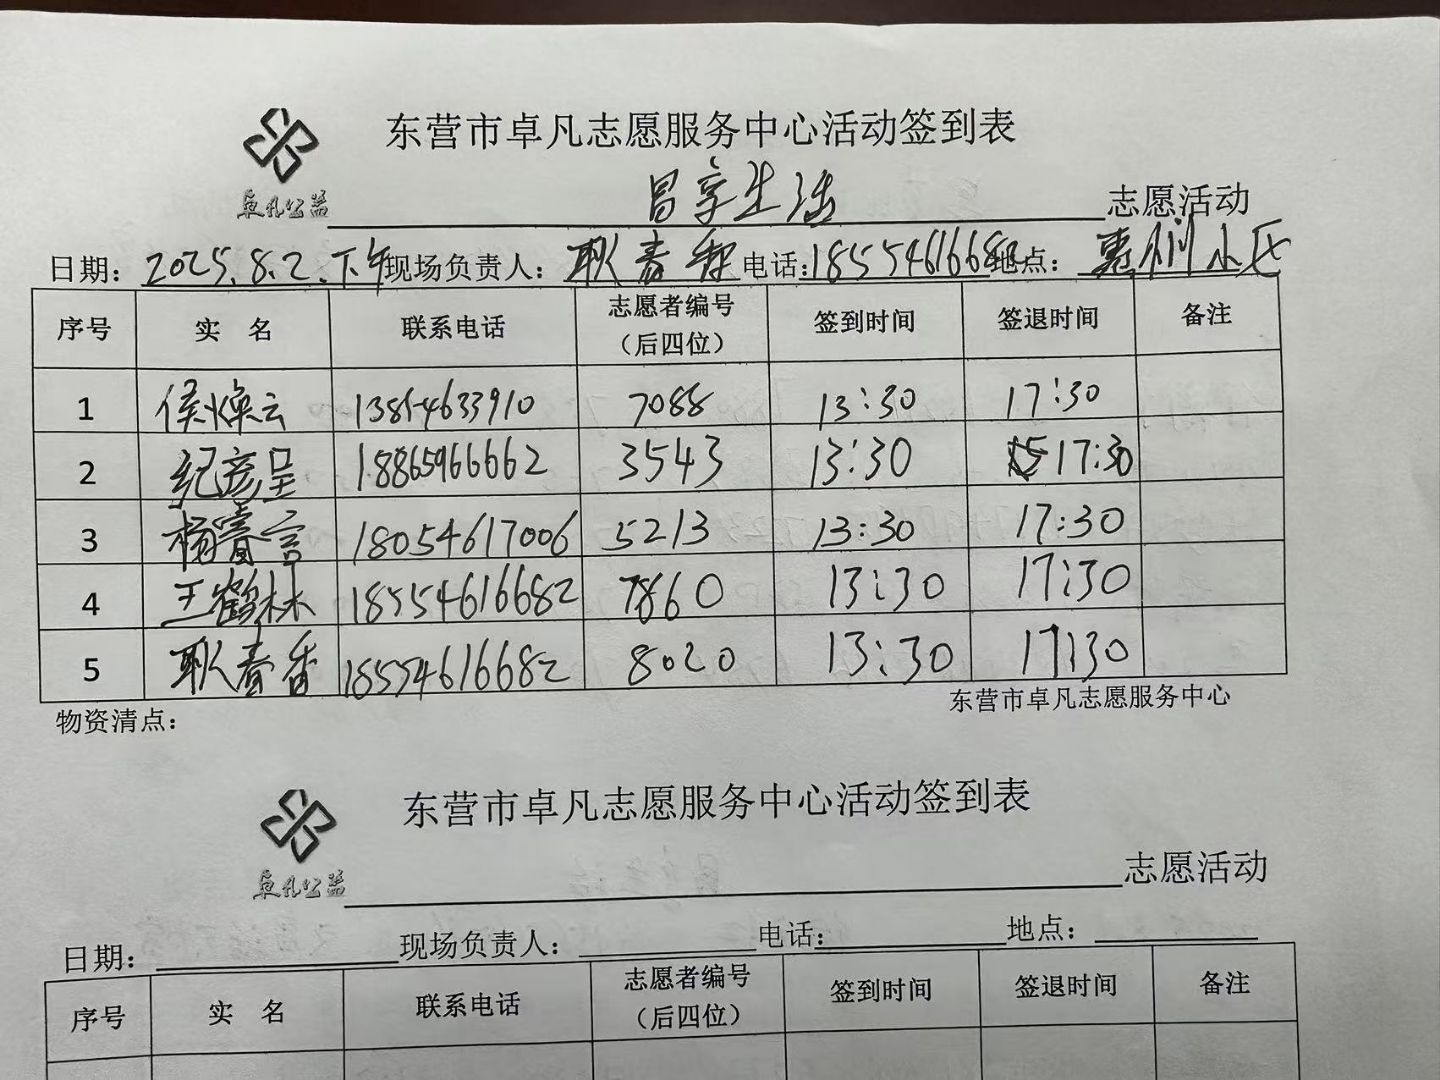 东营市卓凡志愿服务中心活动签到表
卓凡公益 昌享生活 志愿活动
日期：2025.8.2.下午 现场负责人：耿春香 电话：18554616682 地点：惠州小区
序号 实 名 联系电话 志愿者编号（后四位） 签到时间 签退时间 备注
1 侯焕云 13854633910 7088 13:30 17:30
2 纪彦呈 18865966662 3543 13:30 17:30
3 杨睿言 18054617006 5213 13:30 17:30
4 王鹤林 18554616682 7860 13:30 17:30
5 耿春香 18554616682 8020 13:30 17:30
物资清点： 东营市卓凡志愿服务中心
东营市卓凡志愿服务中心活动签到表
卓凡公益 志愿活动
日期： 现场负责人： 电话： 地点：
序号 实 名 联系电话 志愿者编号（后四位） 签到时间 签退时间 备注